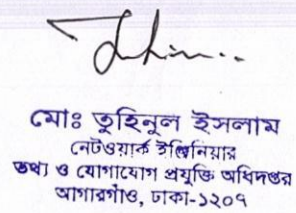 মোঃ তুহিনুল ইসলাম
নেটওয়ার্ক ইঞ্জিনিয়ার
তথ্য ও যোগাযোগ প্রযুক্তি অধিদপ্তর
আগারগাঁও, ঢাকা-১২০৭